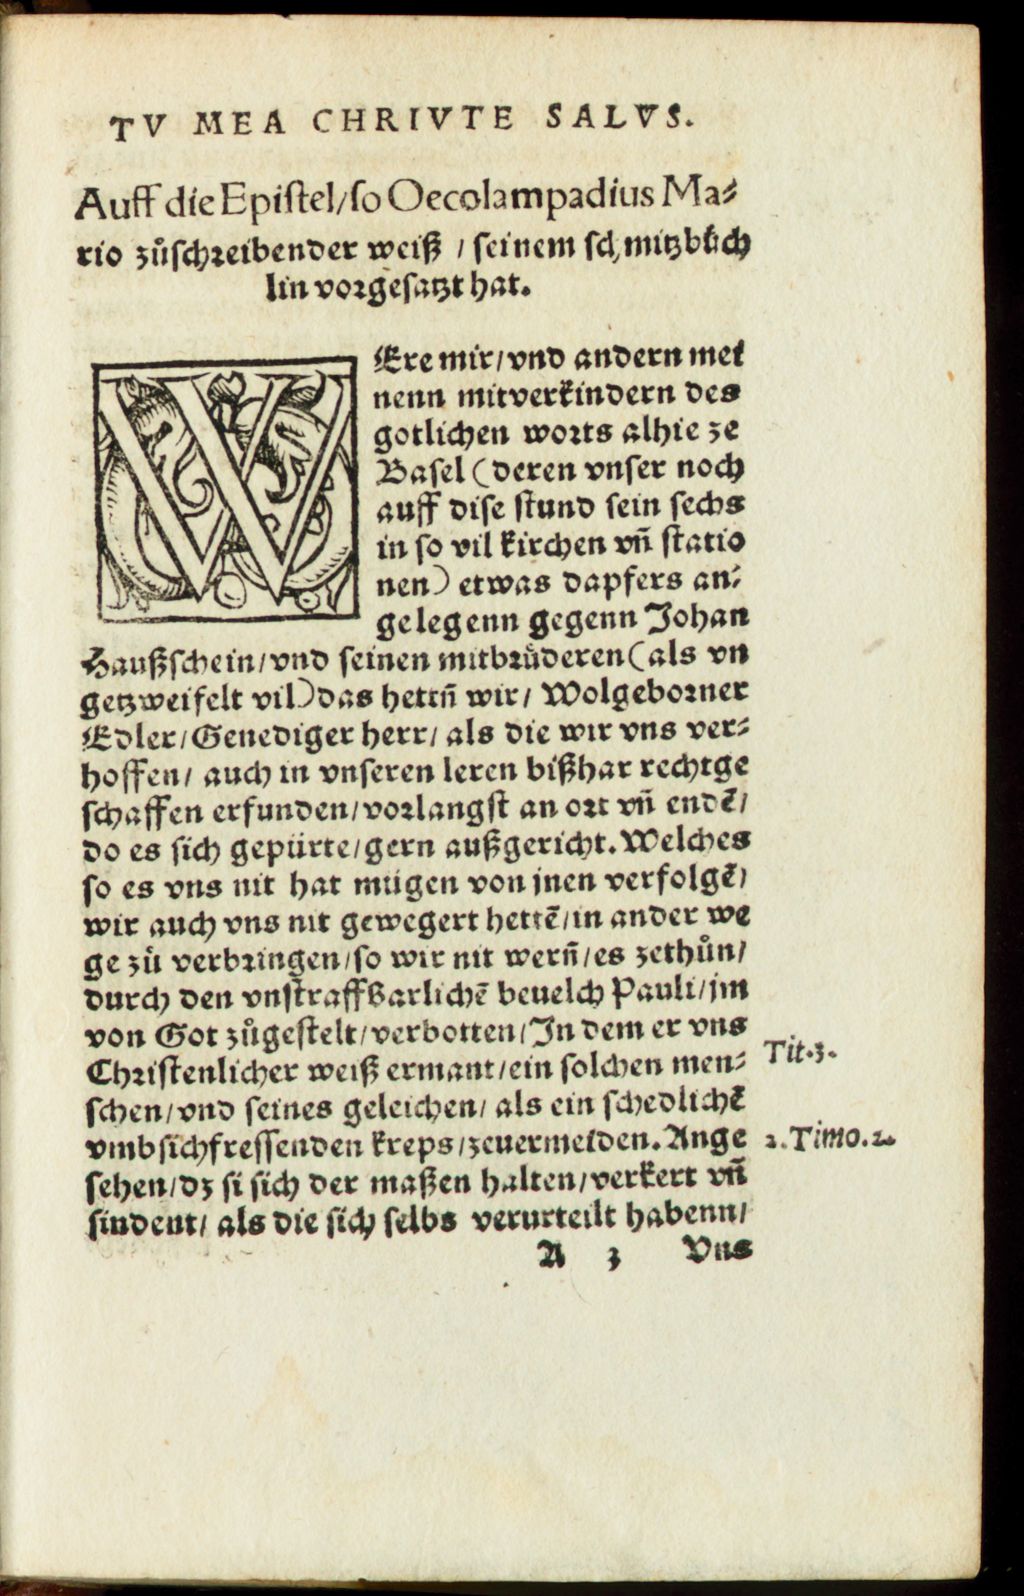 TV MEA CHRIVTE SALVS.
Auff die Epiſtel/ſo Oecolampadius Ma⸗
rio zůſchreibender weiß / ſeinem ſchmitzbůch
lin vorgeſatzt hat.
WEre mir/vnd andern mei
nenn mitverkindern des
gotlichen worts alhie ze
Baſel (deren vnſer noch
auff diſe ſtund ſein ſechs
in ſo vil kirchen vñ ſtatio
nen) etwas dapfers an⸗
gelegenn gegenn Johan
Haußſchein/vnd ſeinen mitbrůderen (als vn
getzweifelt vil) das hettñ wir/ Wolgeborner
Edler/Genediger herr/ als die wir vns ver⸗
hoffen/ auch in vnſeren leren bißhar rechtge
ſchaffen erfunden/vorlangſt an ort vñ endẽ/
do es ſich gepürte/gern außgericht. Welches
ſo es vns nit hat mügen von jnen verfolgẽ/
wir auch vns nit gewegert hettẽ/in ander we
ge zů verbringen/ſo wir nit werñ/es zethůn/
durch den vnſtraffbarlichẽ beuelch Pauli/jm
von Got zůgeſtelt/verbotten/In dem er vns
Chriſtenlicher weiß ermant/ein ſolchen men⸗
ſchen/vnd ſeines geleichen/ als ein ſchedlichẽ
vmbſichfreſſenden kreps/zeuermeiden. Ange
ſehen/dz ſi ſich der maßen halten/verkert vñ
ſindent/ als die ſich ſelbs verurteilt habenn/
Tit.3.
2.Timo.2.
A 3 Vns